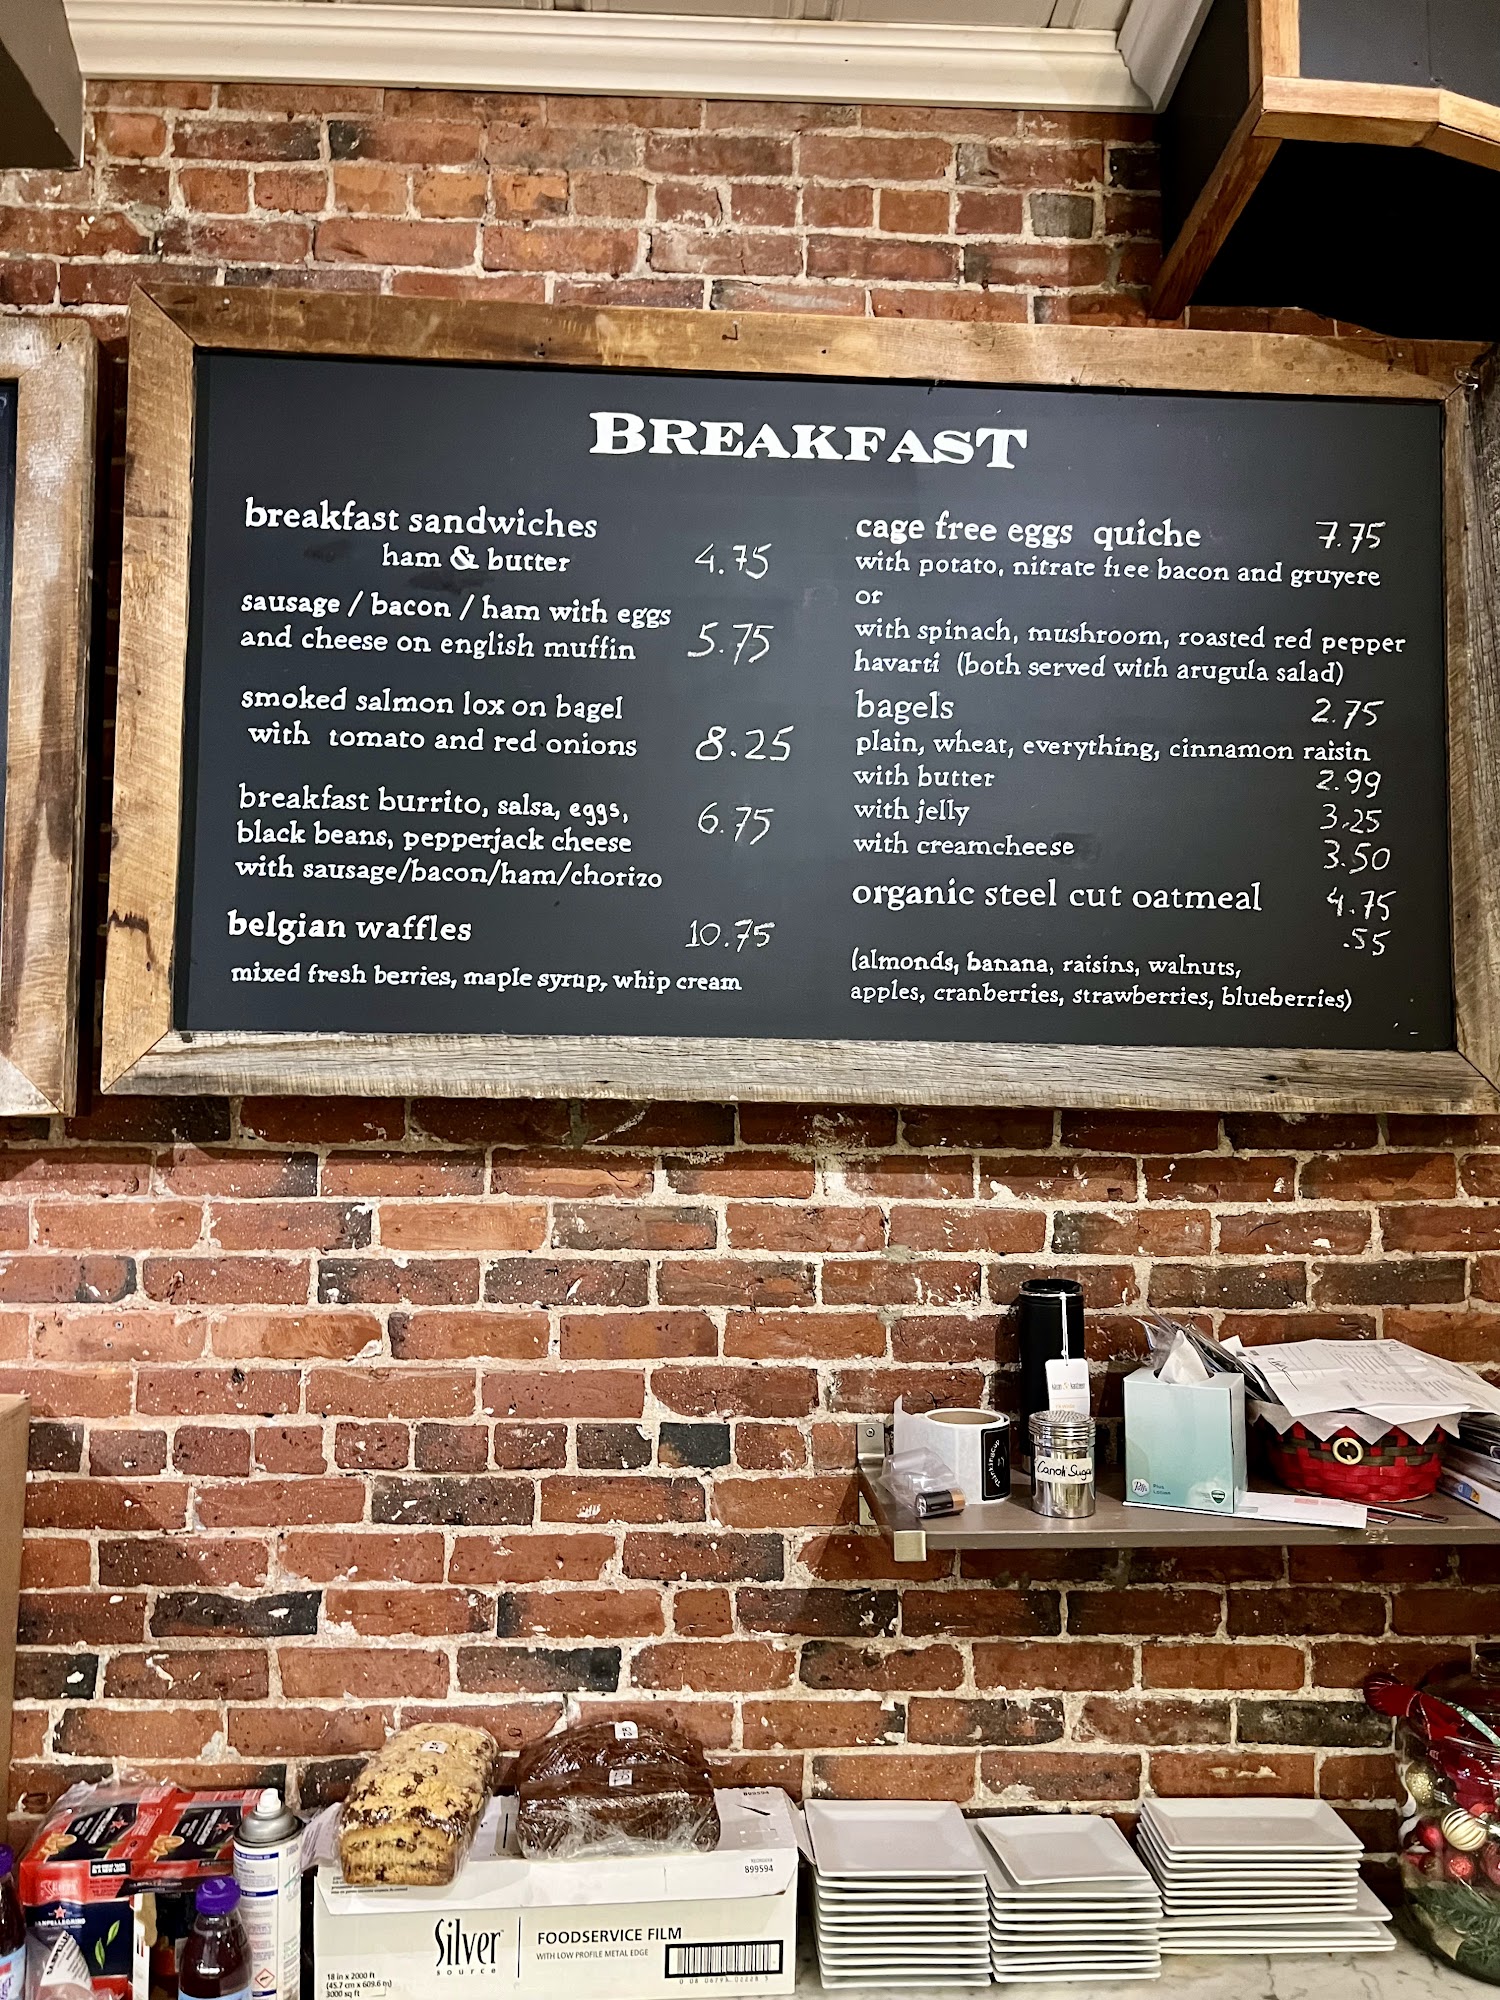 BREAKFAST
breakfast sandwiches
ham & butter 4.75
sausage / bacon / ham with eggs
and cheese on english muffin 5.75
smoked salmon lox on bagel
with tomato and red onions 8.25
breakfast burrito, salsa, eggs,
black beans, pepperjack cheese 6.75
with sausage/bacon/ham/chorizo
belgian waffles 10.75
mixed fresh berries, maple syrup, whip cream
cage free eggs quiche 7.75
with potato, nitrate free bacon and gruyere
or
with spinach, mushroom, roasted red pepper
havarti (both served with arugula salad)
bagels 2.75
plain, wheat, everything, cinnamon raisin
with butter 2.99
with jelly 3.25
with creamcheese 3.50
organic steel cut oatmeal 4.75
.55
(almonds, banana, raisins, walnuts,
apples, cranberries, strawberries, blueberries)
Canoli Sugar
Puffs
SANPELLEGRINO
Silver
source
FOODSERVICE FILM
WITH LOW PROFILE METAL EDGE
18 in x 2000 ft
(45.7 cm x 609.6 m)
3000 sq ft
REORDER
899594